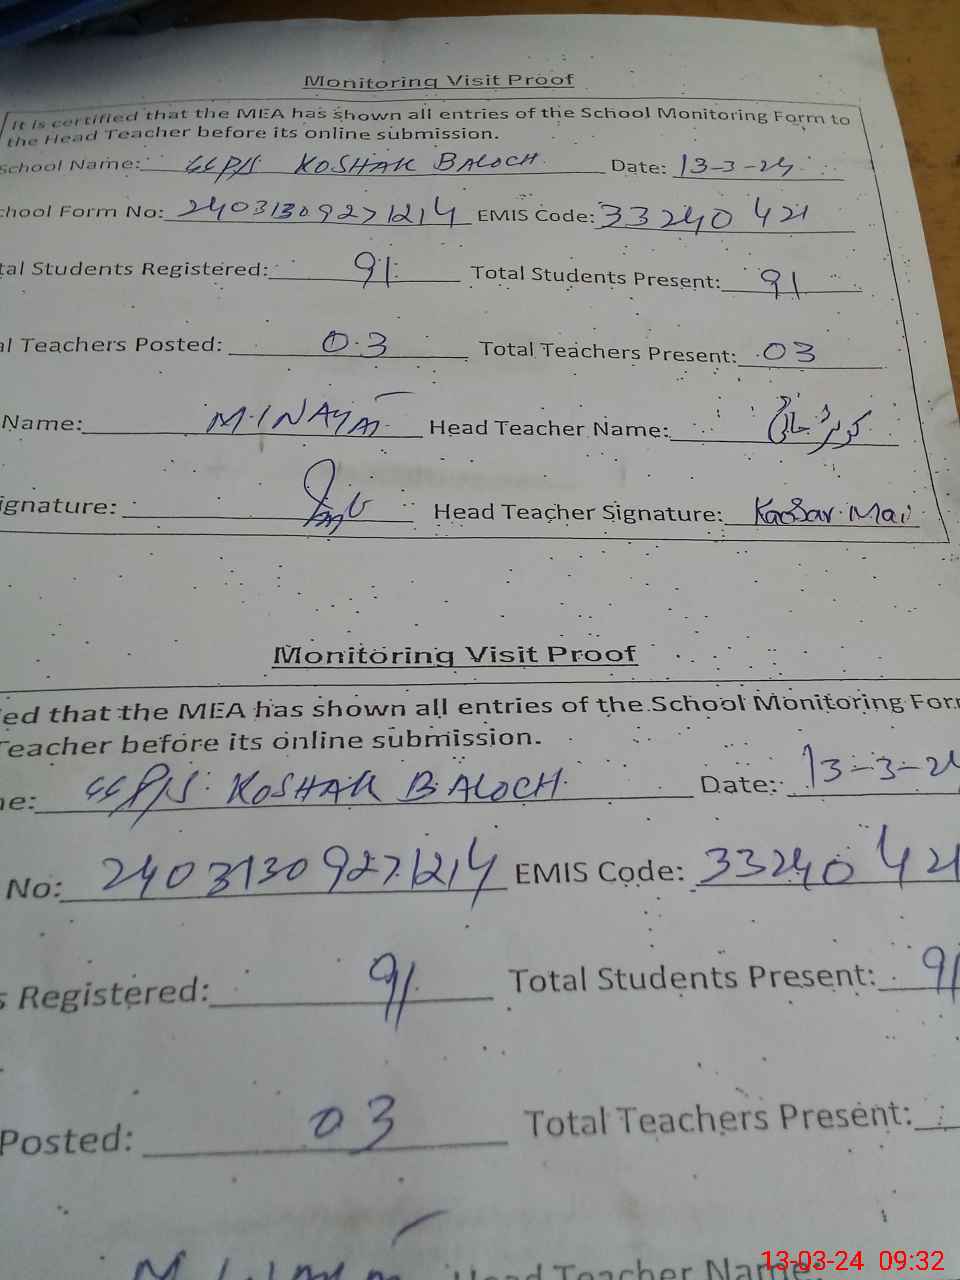 Monitoring Visit Proof
It is certified that the MEA has shown all entries of the School Monitoring Form to
the Head Teacher before its online submission.
School Name: KOSHAK BALOCH Date: 13-3-24
chool Form No: 24031309271214 EMIS Code: 33240421
tal Students Registered: 91 Total Students Present: 91
al Teachers Posted: 03 Total Teachers Present: 03
Name: M.INAYAT Head Teacher Name: کوثر مائی
ignature: Head Teacher Signature: Kaosar Mai
Monitoring Visit Proof
ed that the MEA has shown all entries of the School Monitoring For
Teacher before its online submission.
e: KOSHAK BALOCH Date: 13-3-24
No: 24031309271214 EMIS Code: 33240421
s Registered: 91 Total Students Present: 91
Posted: 03 Total Teachers Present:
Head Teacher Name:
13-03-24 09:32